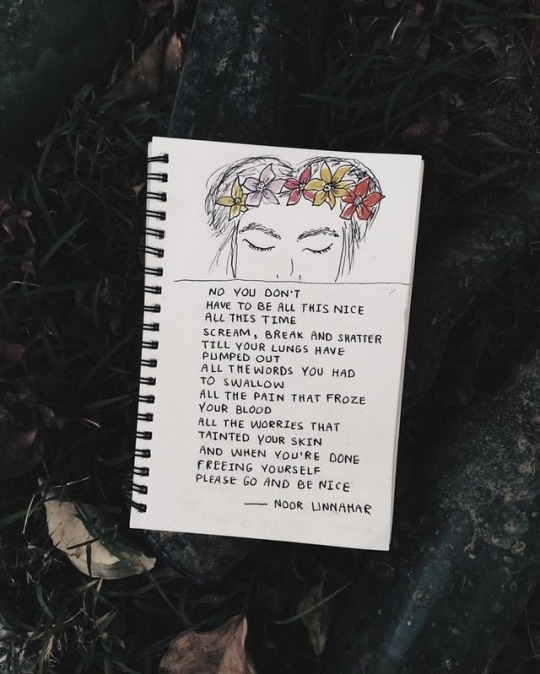 NO YOU DON'T
HAVE TO BE ALL THIS NICE
ALL THIS TIME
SCREAM, BREAK AND SHATTER
TILL YOUR LUNGS HAVE
PUMPED OUT
ALL THE WORDS YOU HAD
TO SWALLOW
ALL THE PAIN THAT FROZE
YOUR BLOOD
ALL THE WORRIES THAT
TAINTED YOUR SKIN
AND WHEN YOU'RE DONE
FREEING YOURSELF
PLEASE GO AND BE NICE
— NOOR UNNAHAR